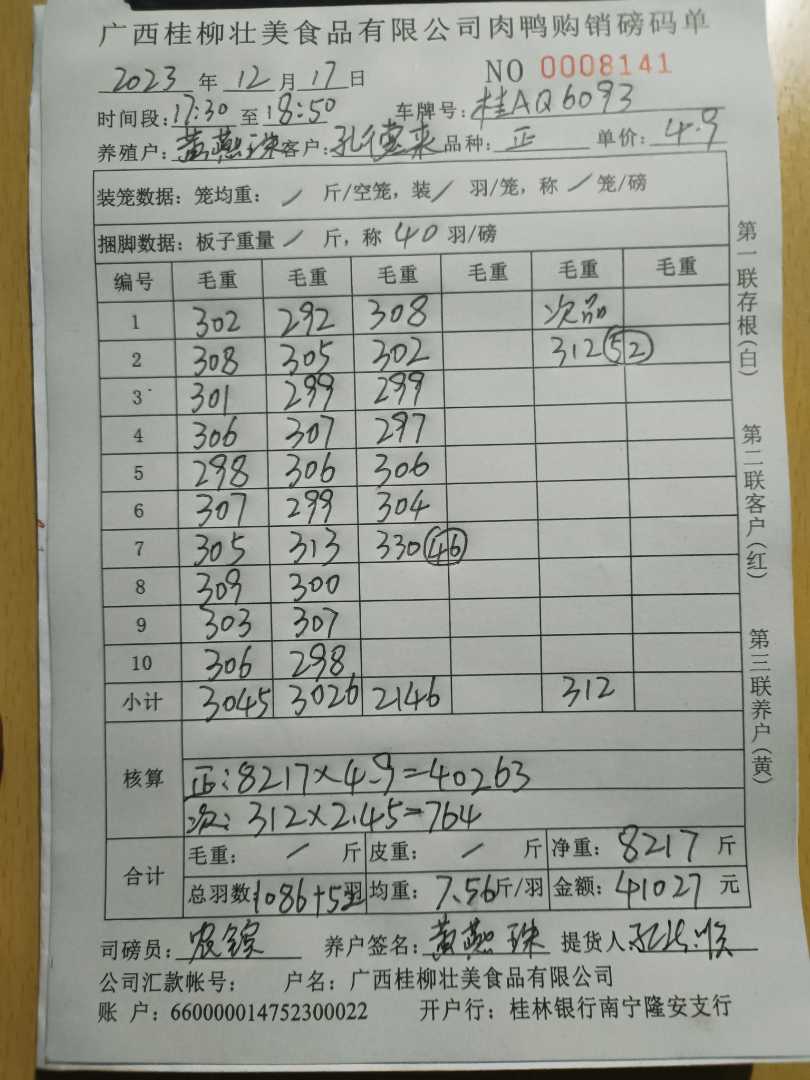 广西桂柳壮美食品有限公司肉鸭购销磅码单
2023 年 12 月 17 日 NO 0008141
时间段:17:30 至 18:50 车牌号:桂AQ6093
养殖户:黄燕珠 客户:孔德来 品种:正 单价:4.9
装笼数据:笼均重: / 斤/空笼,装/ 羽/笼,称 / 笼/磅
捆脚数据:板子重量 / 斤,称 40 羽/磅
编号 毛重 毛重 毛重 毛重 毛重 毛重
1 302 292 308 次品
2 308 305 302 312 52
3 301 299 299
4 306 307 297
5 298 306 306
6 307 299 304
7 305 313 330 46
8 309 300
9 303 307
10 306 298
小计 3045 3026 2146 312
核算
正:8217×4.9=40263
次:312×2.45=764
合计
毛重: / 斤 皮重: / 斤 净重: 8217 斤
总羽数1086+52羽 均重: 7.56斤/羽 金额: 41027 元
司磅员: 养户签名:黄燕珠 提货人:
公司汇款帐号: 户名:广西桂柳壮美食品有限公司
账 户:660000014752300022 开户行:桂林银行南宁隆安支行
第一联存根(白)
第二联客户(红)
第三联养户(黄)